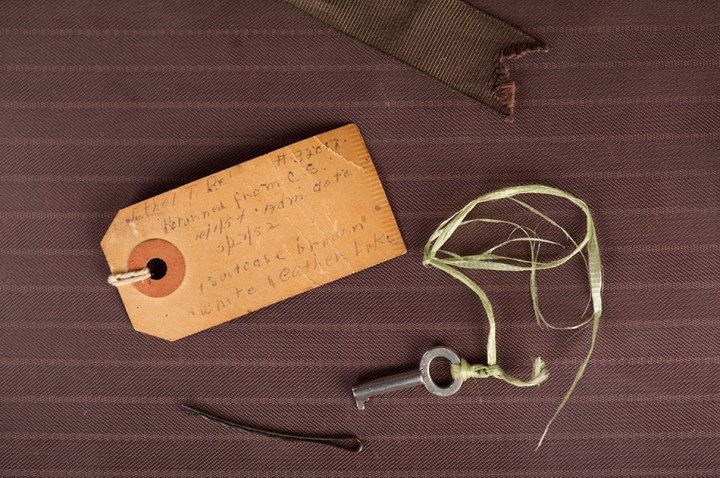 Ethel T # 32017
Returned from C.S.
10/1/54. Adm date
5/21/52
1 suitcase brown
white leather like